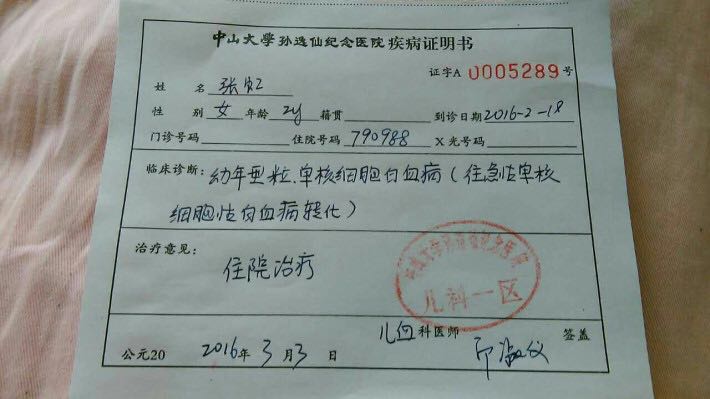 中山大学孙逸仙纪念医院疾病证明书
证字A 0005289号
姓 名 张虹
性 别 女 年龄 2y 籍贯 到诊日期 2016-2-18
门诊号码 住院号码 790988 X光号码
临床诊断: 幼年型粒.单核细胞白血病(往急性单核
细胞性白血病转化)
治疗意见:
住院治疗
中山大学孙逸仙纪念医院
儿科一区
儿血科医师 签盖
公元20 2016年3月3日